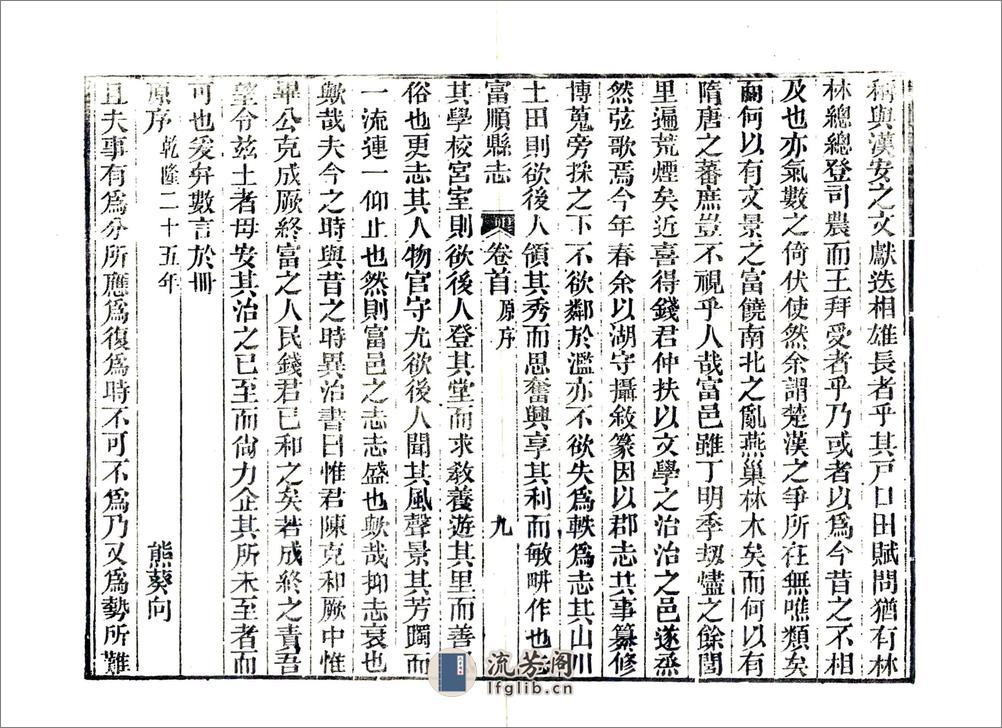 稱與漢安之文獻迭相雄長者乎其戸口田賦問猶有林
林總總登司農而王拜受者乎乃或者以為今昔之不相
及也亦氣數之倚伏使然余謂楚漢之爭所在無噍類矣
而何以有文景之富饒南北之亂燕巢林木矣而何以有
隋唐之蕃庶豈不視乎人哉富邑雖丁明季刼燼之餘閭
里遍荒煙矣近喜得錢君仲扶以文學之治治之邑遂烝
然弦歌焉今年春余以湖守攝敘篆因以郡志共事纂修
博蒐旁採之下不欲鄰於濫亦不欲失為軼為志其山川
土田則欲後人領其秀而思奮興享其利而敏畊作也志
富順縣志 卷首 原序 九
其學校宮室則欲後人登其堂而求教養遊其里而善風
俗也更志其人物官守尤欲後人聞其風聲景其芳躅而
一流連一仰止也然則富邑之志志盛也歟哉抑志衰也
歟哉夫今之時與昔之時異治書曰惟君陳克和厥中惟
畢公克成厥終富之人民錢君已和之矣若成終之責吾
望令兹土者毋安其治之已至而尙力企其所未至者而
可也爰弁數言於冊
原序 乾隆二十五年 熊葵向
且夫事有為分所應為復為時不可不為乃又為勢所難
流芳阁
lfglib.cn